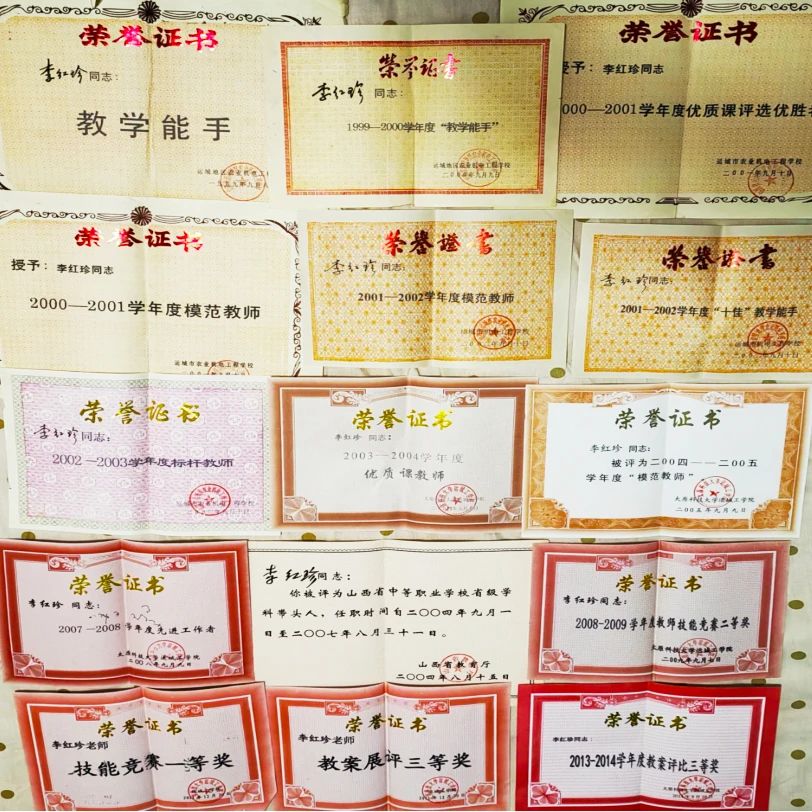 荣誉证书
李红珍同志：
教学能手
运城地区农业机电工程学校
荣誉证书
李红珍 同志：
1999—2000学年度“教学能手”
运城地区农业机电工程学校
荣誉证书
予：李红珍同志
2000—2001学年度优质课评选优胜
运城市农业机电工程学校
二〇〇一年九月十日
荣誉证书
授予：李红珍同志
2000—2001学年度模范教师
运城市农业机电工程学校
荣誉证书
李红珍同志：
2001—2002学年度模范教师
荣誉证书
李红珍同志：
2001—2002学年度“十佳”教学能手
荣誉证书
李红珍同志：
2002—2003学年度标杆教师
荣誉证书
李红珍 同志：
2003—2004学年度
优质课教师
荣誉证书
李红珍 同志：
被评为二00四——二00五
学年度“模范教师”
太原科技大学运城工学院
二00五年九月九日
荣誉证书
李红珍 同志：
2007-2008学年度先进工作者
太原科技大学运城工学院
二00八年九月九日
李红珍同志：
你被评为山西省中等职业学校省级学
科带头人，任职时间自二〇〇四年九月一
日至二〇〇七年八月三十一日。
山西省教育厅
二〇〇四年八月十五日
荣誉证书
李红珍同志：
2008-2009学年度教师技能竞赛二等奖
太原科技大学运城工学院
二00九年九月七日
荣誉证书
李红珍老师
技能竞赛一等奖
荣誉证书
李红珍老师
教案展评三等奖
荣誉证书
李红珍同志：
2013-2014学年度教案评比三等奖